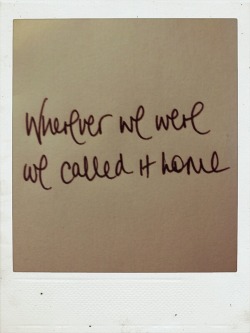 Wherever we were
we called it home